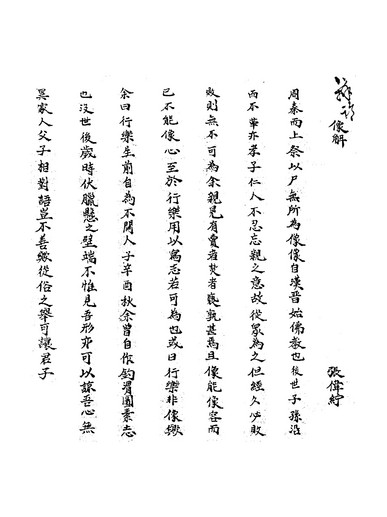 像解
張偉紵
周秦而上祭以尸無所為像像自漢晉始佛教也後世子孫沿
而不革亦孝子仁人不忍忘親之意故從眾為之但經久必敗
敗則無不可為余親見有賣者焚者褻孰甚焉且像能像容而
已不能像心至於行樂用以寫志若可為也或曰行樂非像歟
余曰行樂生前自為不關人子辛酉秋余曾自作釣渭圖素志
也沒世後歲時伏臘懸之壁端不惟見吾形亦可以諒吾心無
異家人父子相對語豈不善歟從俗之舉可讓君子